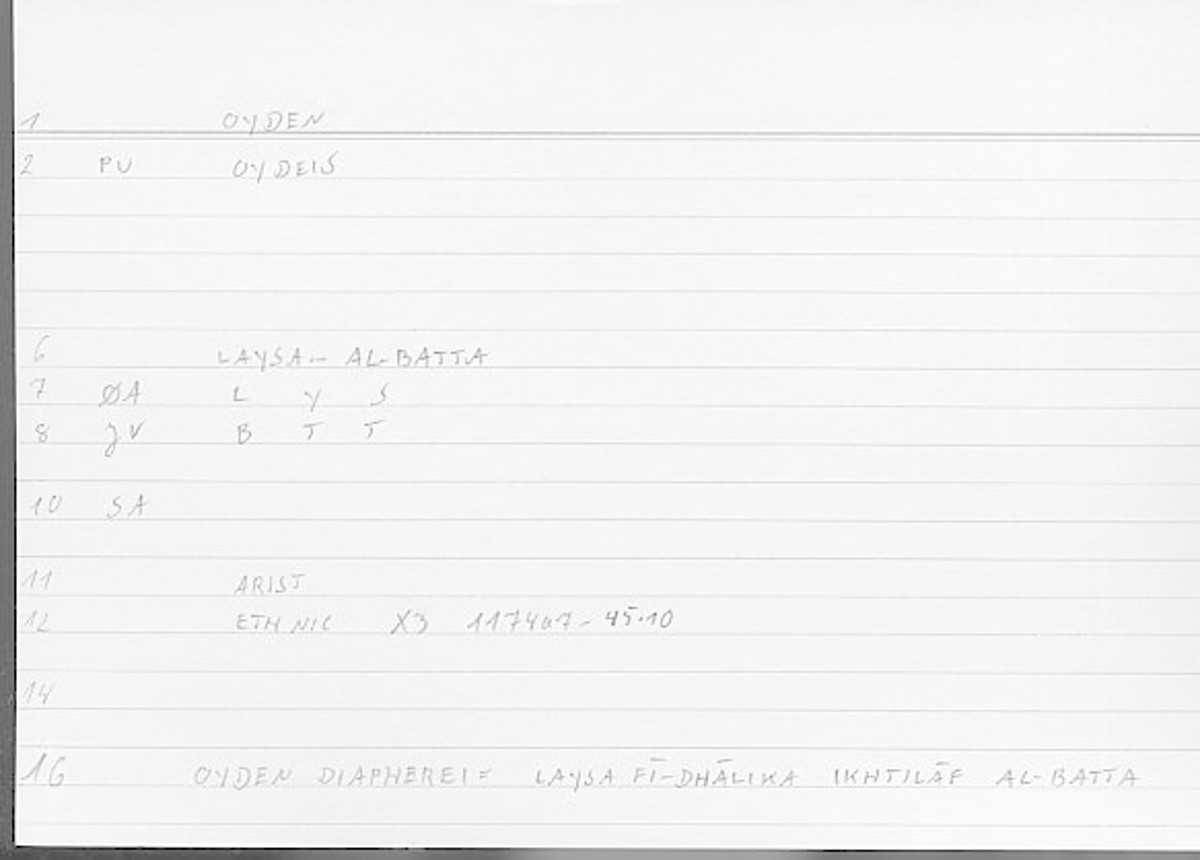 1 OYDEN
2 PU OYDEIS
6 LAYSA... AL-BATTA
7 ØA L Y S
8 JV B T T
10 SA
11 ARIST
12 ETH NIC X3 1174a7 - 45.10
14
16 OYDEN DIAPHEREI = LAYSA FĪ-DHĀLIKA IKHTILĀF AL-BATTA